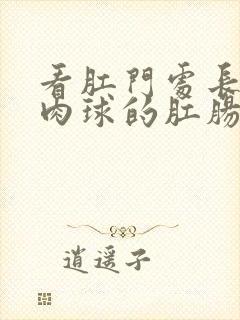 看肛門處長
肉球的肛腸
逍遥子